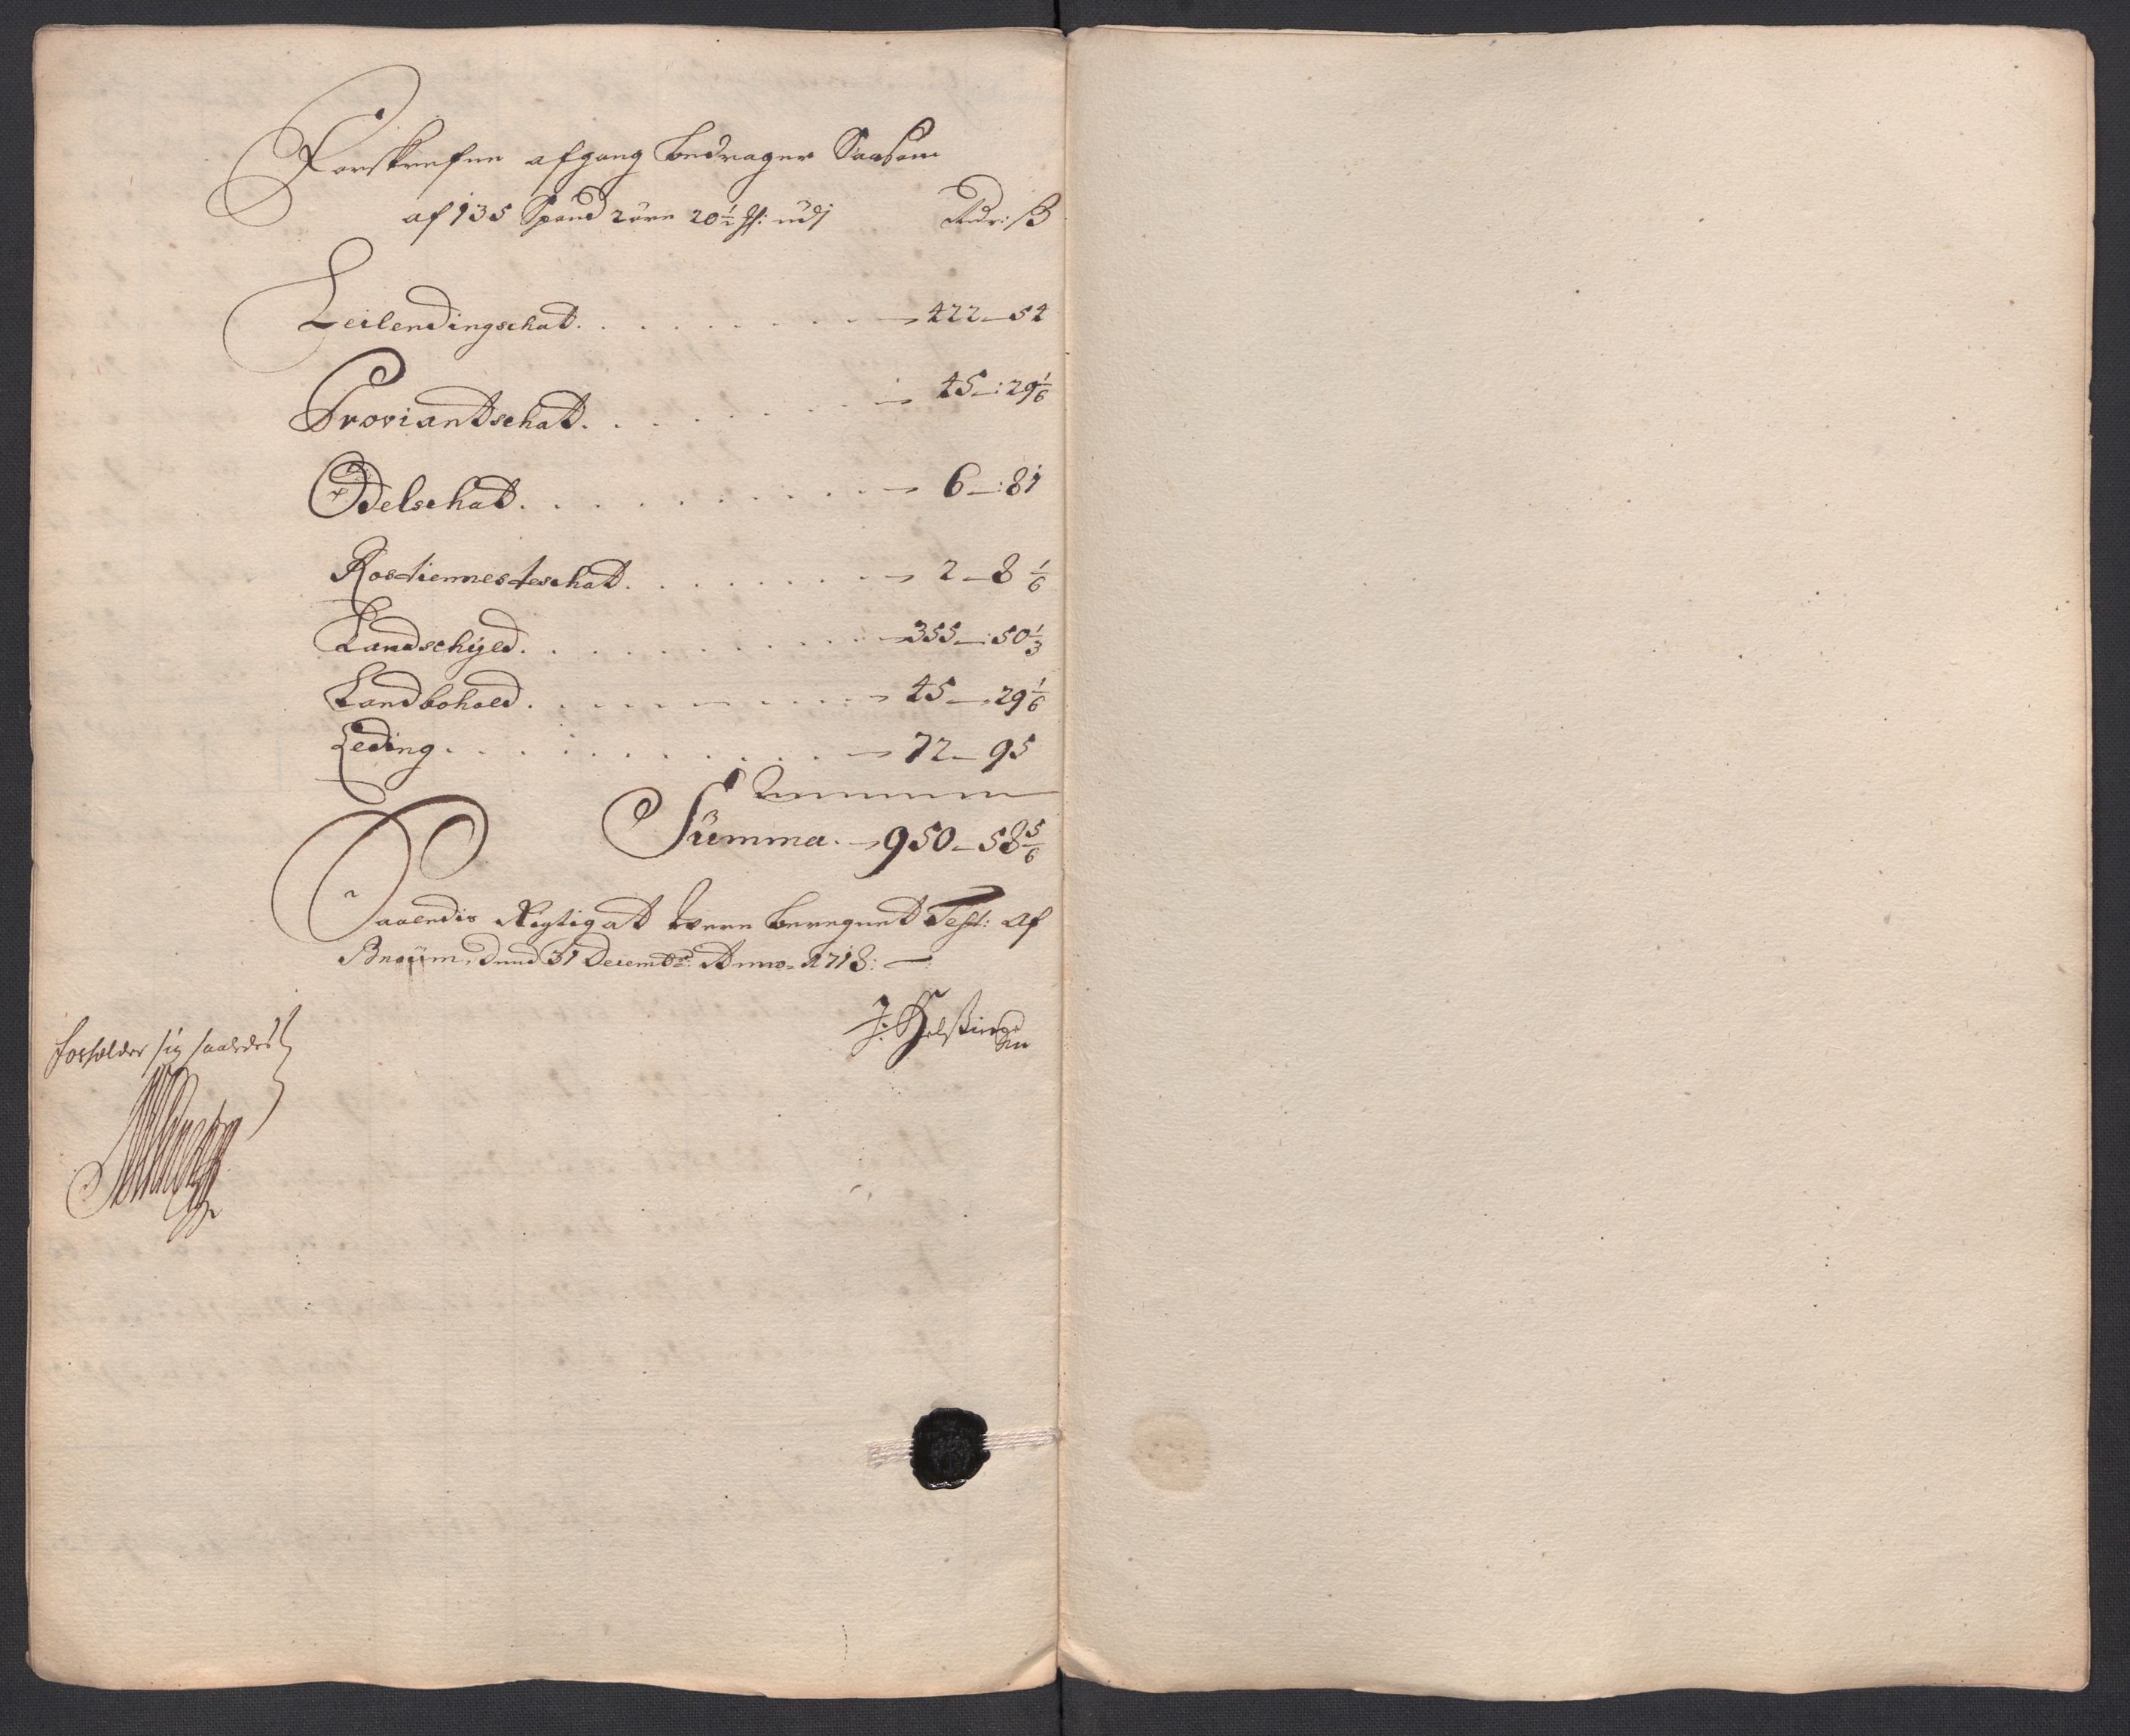 Forskrefne afgang bedrager Saasom
af 135 Spand 2 öre 20½ ₰: udj Rdr: ß
Leilendingschat. . . . . . . . . 422 – 54
Proviantschat. . . . . . . . . 45 –: 29 1/6
Odelschat. . . . . . . . . . . 6 –: 81
Rostiennesteschat. . . . . . . . 2 – 8 1/6
Landschyld. . . . . . . . . . 355 –: 50 1/3
Landbohold. . . . . . . . . . 45 – 29 1/6
Leding. . . . . . . . . . . 72 – 95
Summa. – 950 – 58 5/6
Saaledis Rigtig at were beregnet Test: af
Bnaüm, dend 31 Decembr: Anno 1718: –
forholder sig saaledes